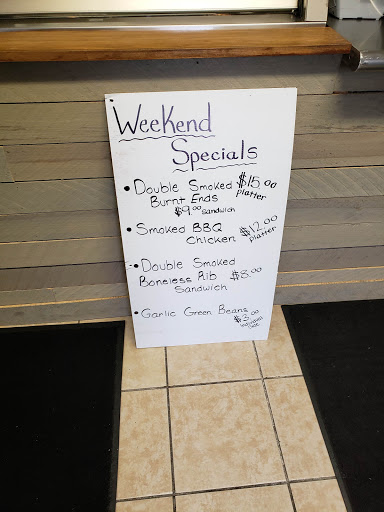 Weekend
Specials
• Double Smoked $15.00
Burnt Ends platter
$9.00 sandwich
• Smoked BBQ $12.00
Chicken platter
• Double Smoked
Boneless Rib $8.00
Sandwich
• Garlic Green Beans
$3.00
individual
side